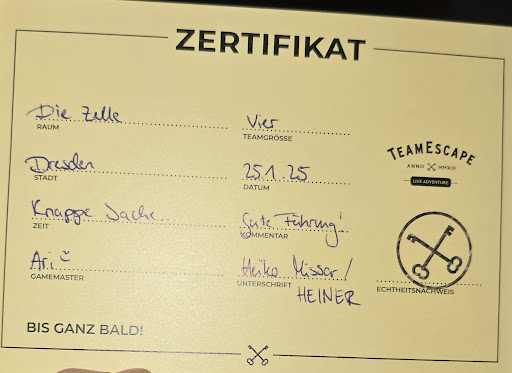 ZERTIFIKAT
Die Zelle
RAUM
Vier
TEAMGRÖSSE
Dresden
STADT
25.1.25
DATUM
Knappe Sache
ZEIT
Gute Führung!
KOMMENTAR
Ari
GAMEMASTER
Heiko Missar /
HEINER
UNTERSCHRIFT
TEAMESCAPE
ANNO MMXIII
LIVE ADVENTURE
ECHTHEITSNACHWEIS
BIS GANZ BALD!